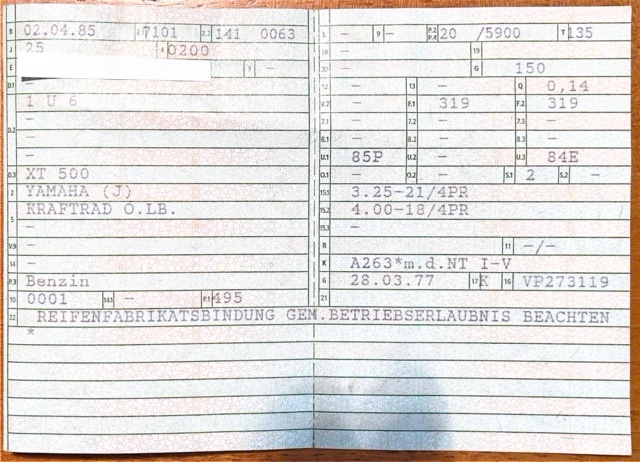 B 02.04.85 2.1 7101 2.2 141 0063
J 25 4 0200
E 3 -
D.1 -
1 U 6
-
D.2 -
-
D.3 XT 500
2 YAMAHA (J)
5 KRAFTRAD O.LB.
-
V.9 -
14 -
P.3 Benzin
10 0001 14.1 - P.1 495
L - 9 - P.2 P.4 20 /5900 T 135
18 - 19
20 - G 150
12 - 13 - Q 0,14
V.7 - F.1 319 F.2 319
7.1 - 7.2 - 7.3 -
8.1 - 8.2 - 8.3 -
U.1 85P U.2 - U.3 84E
O.1 - O.2 - S.1 2 S.2 -
15.1 3.25-21/4PR
15.2 4.00-18/4PR
15.3 -
R 11 -/-
K A263*m.d.NT I-V
6 28.03.77 17 K 16 VP273119
21
22 REIFENFABRIKATSBINDUNG GEM.BETRIEBSERLAUBNIS BEACHTEN
*